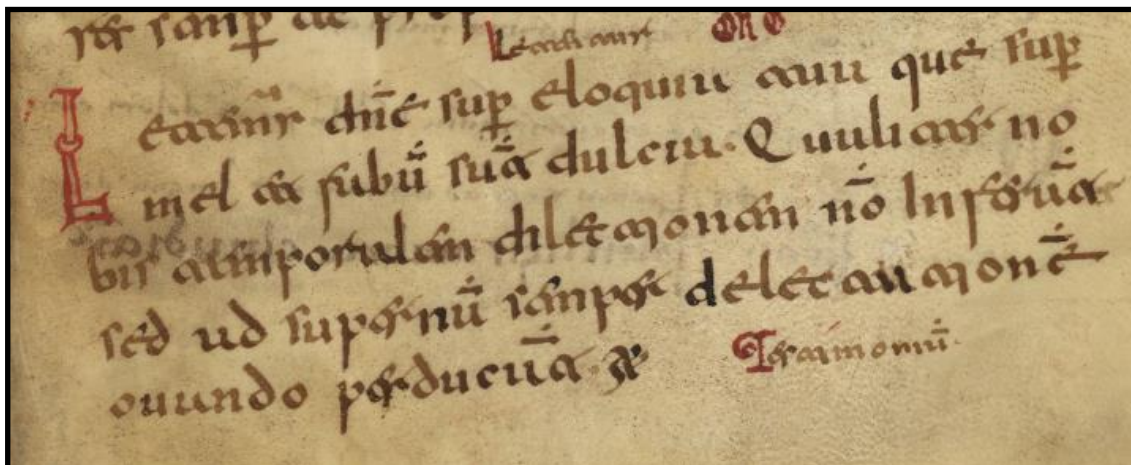 Letamur ORO
Letamur dnē sup eloquia tua que sup
mel et fabū sūt dulcia. Qualiter no
bis temporalem dilectionem nō Inserāt
sed ad supernū semper delectationē
ouando perducāt. per Testimoniū.